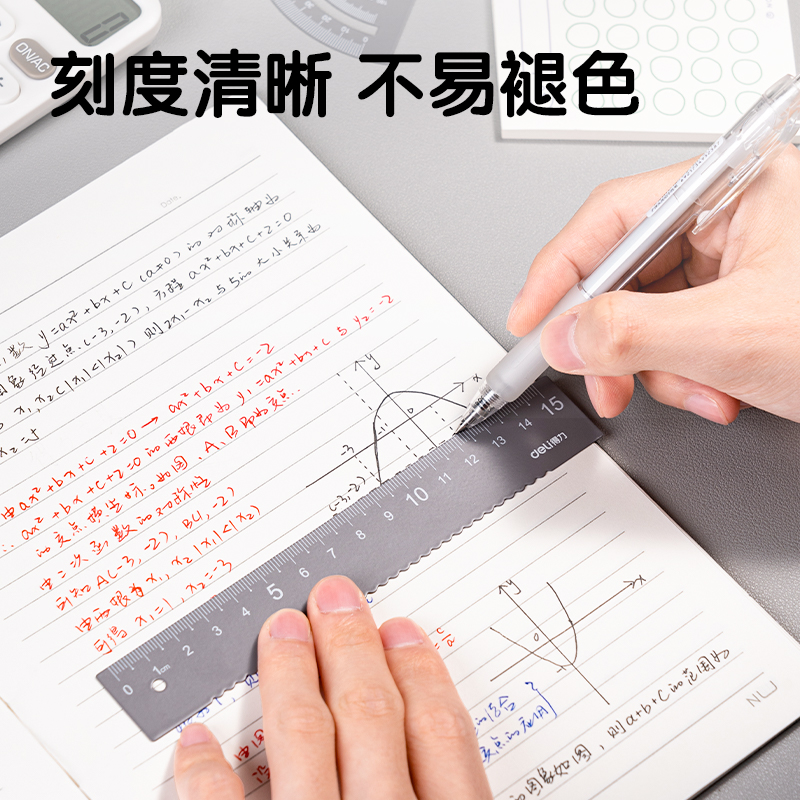 刻度清晰 不易褪色
ON/AC
Date.
数 y=ax²+bx+c (a≠0) 的对称轴为
图象经过点(-3,-2), 方程 ax²+bx+c+2=0
x₁, x₂ (|x₁|<|x₂|) 则 2x₁-x₂ 与 5 的大小关系为
由 ax²+bx+c+2=0 → ax²+bx+c=-2
∴ ax²+bx+c+2=0 的两根即为 y₁=ax²+bx+c 与 y₂=-2
的交点横坐标. 如图, A、B即为交点.
由二次函数的对称性
可知 A(-3,-2), B(1,-2)
由两根为 x₁, x₂ |x₁|<|x₂|
可得 x₁=1, x₂=-3
y
x
0
-3
(-3,-2)
0 1cm 2 3 4 5 6 7 8 9 10 11 12 13 14 15
deli得力
y
x
0
c/a
的图象如图, 则 a+b+c 的范围为